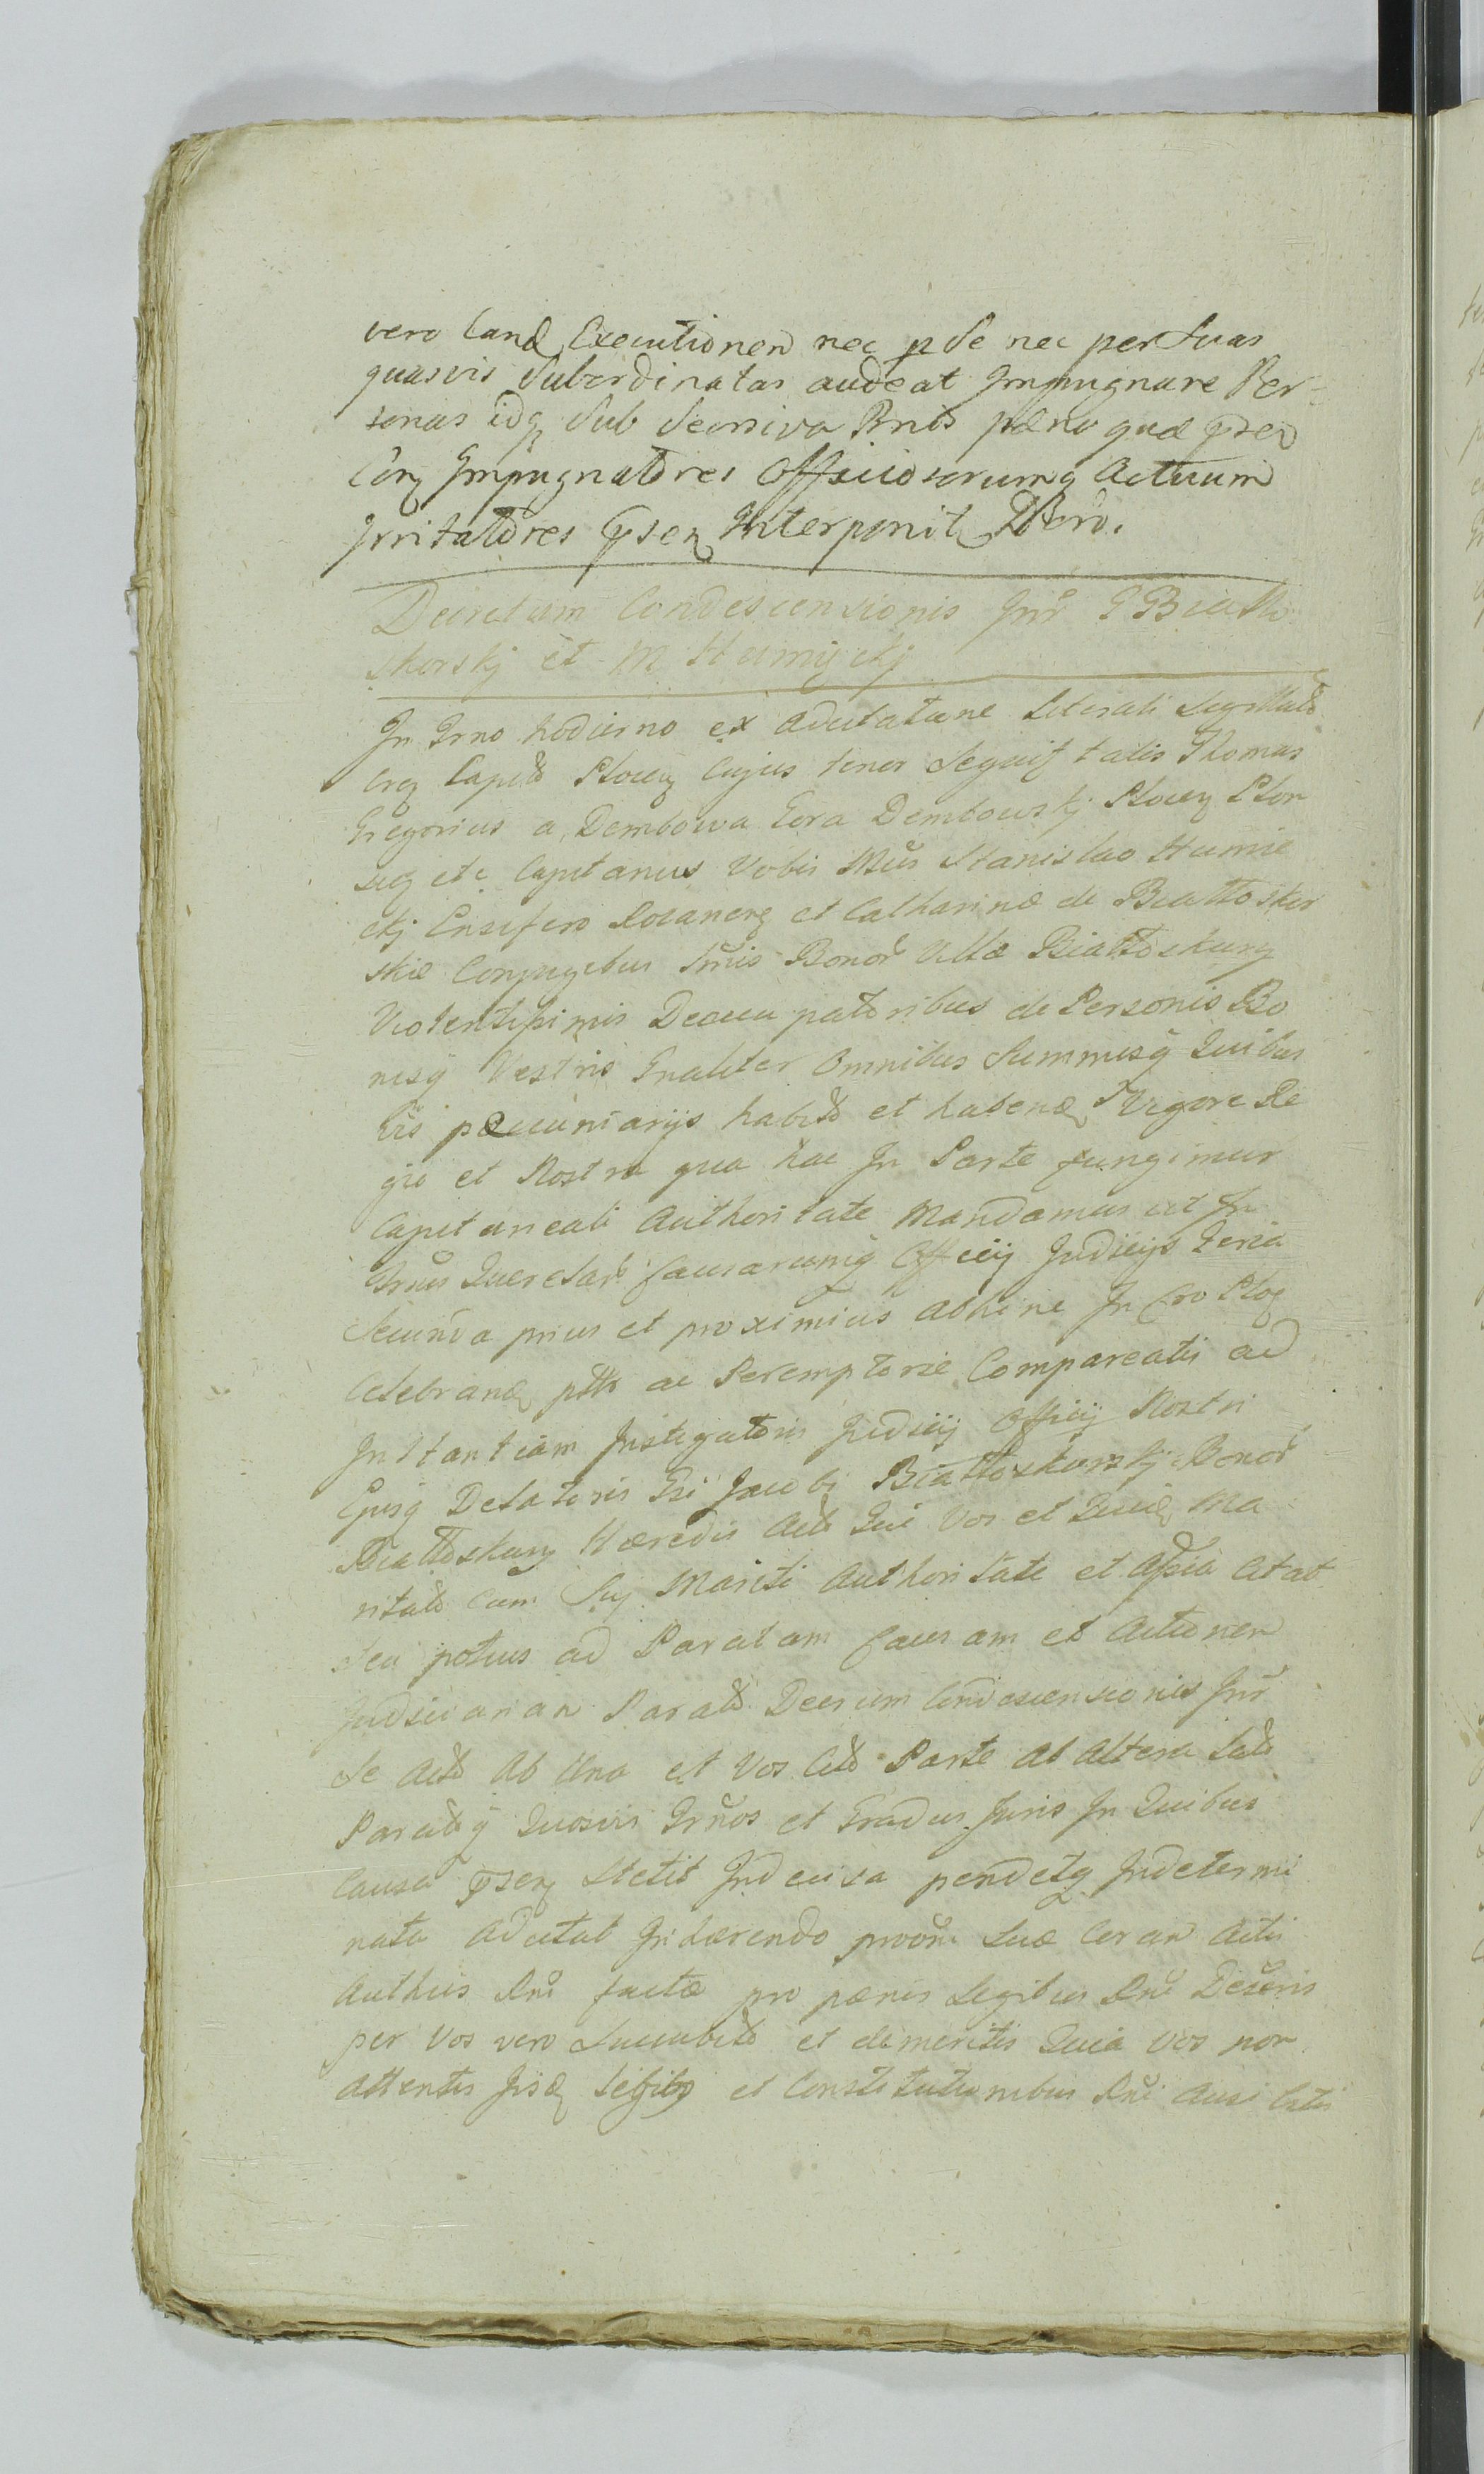 vero eand Executionem nec p se nec per Suas
quasvis Subordinatas audeat Impugnare Per-
sonas idq Sub decisiva Bnis pæna quæ pdsen
Conz Impugnatores Officiosorumq Actuum
Irritatores psen Interponit Decro.
Decretum Condescensionis Intr G Biatto
skorskj et M Humięckj
In Trno hodierno ex Adcitatione Literali Sigillato
Crq Capitt Plocen Cujus tenor Sequit talis Thomas
Gregorius a Dembowa Gora Dembowskj Plocen Plon
scen etc Capitaneus Vobis Mcis Stanislao Humie
ckj Ensifero Rozanens et Catharinæ de Biattoskor
skie Conjugibus Imis Bonor Villæ Biattoskury
Violentissimis Deoccupatoribus de Personis Bo
nisq Vestris Gnaliter Omnibus Summisq Quibus
vis pæcuniarijs habitt et habend Vigore Re
gia et Nostra qua hac In Parte fungimur
Capitaneali Authoritate Mandamus ut In
Trnis Querelarr Causarumq Officij Judicijs Feria
Secunda prius et proximius abhinc In Cro Ploc
Celebrand ptto ac Peremptorie Compareatis ad
Instantiam Instigatoris Judicij Officij Nostri
Ejusq Delatoris Gsi Jacobi Biattoskurskj Bonor
Biattoskury Hæredis Acts Qui Vos et Quid Ma
ritali cum Suj Mariti Authoritate et Assia Citat
seu potius ad Paratam Causam et Actionem
Judiciariam Paratt Decrum Condescensionis Intr
Se Acts Ab Una et Vos Citt Parte Ab Altera Latt
Parattq Quosvis Trnos et Gradus Juris In Quibus
Causa psen Stetit Indecisa pendetq Indetermi
nata Adcitat Inhærendo proōni Suæ Coram Actis
Authcis Rni factæ pro pænis Legibus Rni Descris
per Vos vero Succubitt et demeritis Quia Vos non
Attentis Iisd Legibs et Constitutionibus Rni Ausi Estis